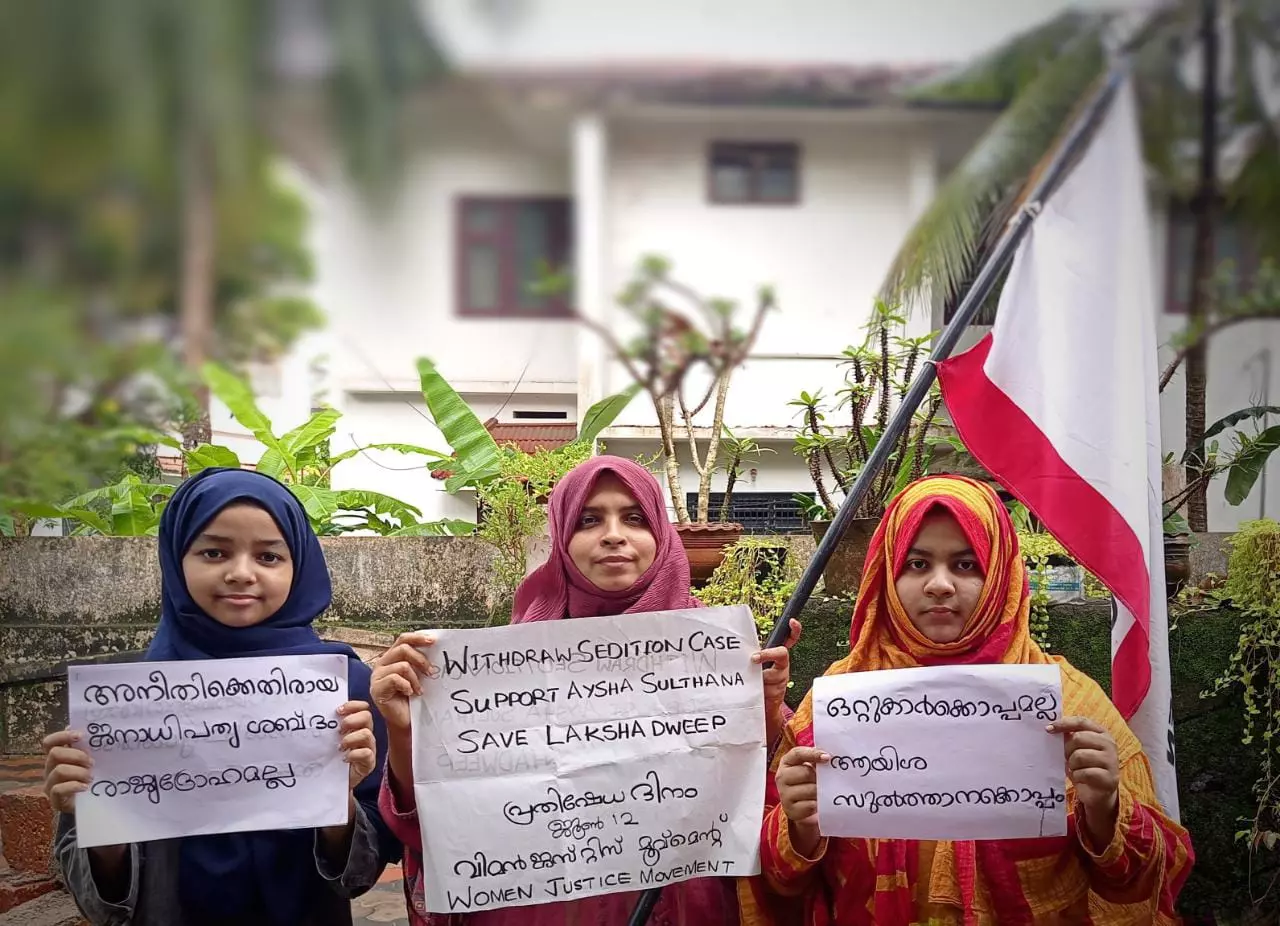 അനീതിക്കെതിരായ
ജനാധിപത്യ ശബ്ദം
രാജ്യദ്രോഹമല്ല
WITHDRAW SEDITION CASE
SUPPORT AYSHA SULTHANA
SAVE LAKSHADWEEP
പ്രതിഷേധ ദിനം
ജൂൺ 12
വിമൻ ജസ്റ്റിസ് മൂവ്മെന്റ്
WOMEN JUSTICE MOVEMENT
ഒറ്റുകാർക്കൊപ്പമല്ല
ആയിശ
സുൽത്താനക്കൊപ്പം